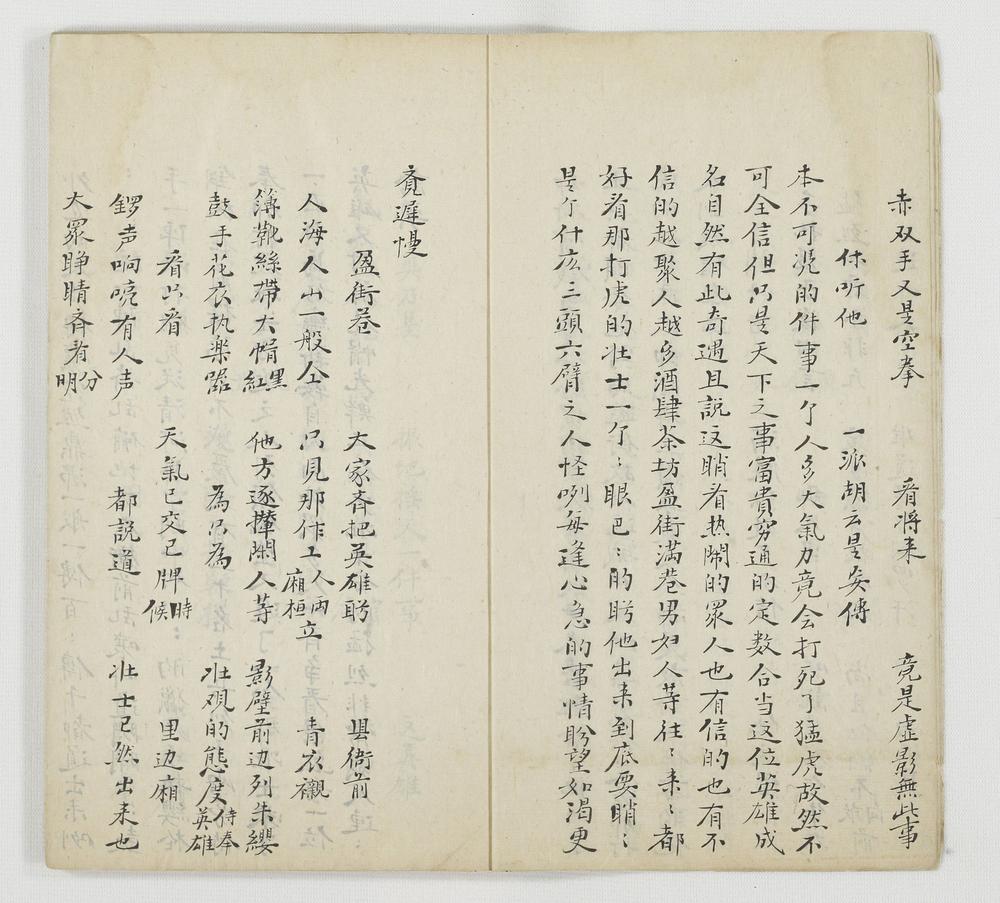 赤双手又是空拳　看将来　竟是虚影無此事
休听他　一派胡云是妄傳
本不可凭的件事一个人多大氣力竟会打死了猛虎故然不
可全信但只是天下之事富貴穷通的定数合当这位英雄成
名自然有此奇遇且説这睄看热閙的眾人也有信的也有不
信的越聚人越多酒肆茶坊盈街满巷男妇人等往〻来〻都
好看那打虎的壮士一个〻眼巴〻的盻他出来到底要睄〻
是个什広三頭六臂之人怪咧每逢心急的事情盼望如渴更
竟遲慢
盈街巷　大家斉把英雄盻　县衙前
人海人山一般仝　只見那作工人両廂桓立　青衣襯
簿靴絲帯大帽黑紅　他方逐攆閑人等　影壁前边列朱纓
鼓手花衣执楽器　為只為　壮观的態度侍奉英雄
看只看　天氣已交巳牌時候　里边廂
鑼声响喨有人声　都説道　壮士已然出来也
大眾睁睛斉看分明